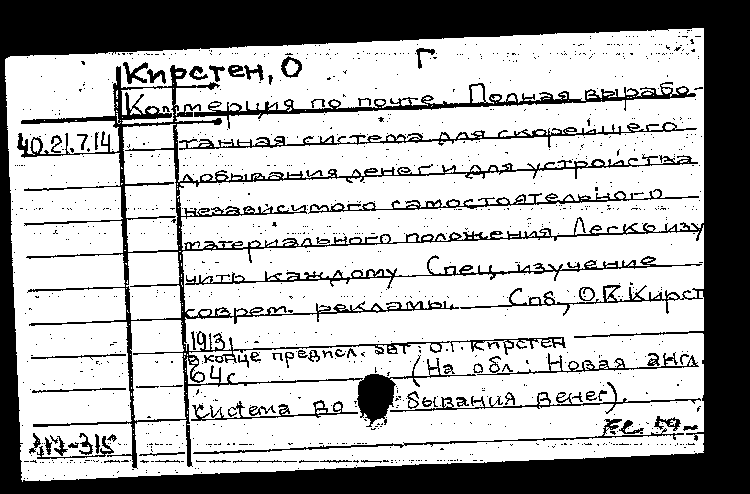 Г
Кирстен, О
Коммерция по почте. Полная вырабо-
40.21.7.14 танная система для скорейшего
добывания денег и для устройства
независимого самостоятельного
материального положения. Легко изу
чить каждому Спец. изучение
соврем. рекламы. Спб., О.К. Кирст
1913,
В конце предисл. авт: О.Г. Кирстен
64с. (На обл.: Новая англ.
система бывания денег).